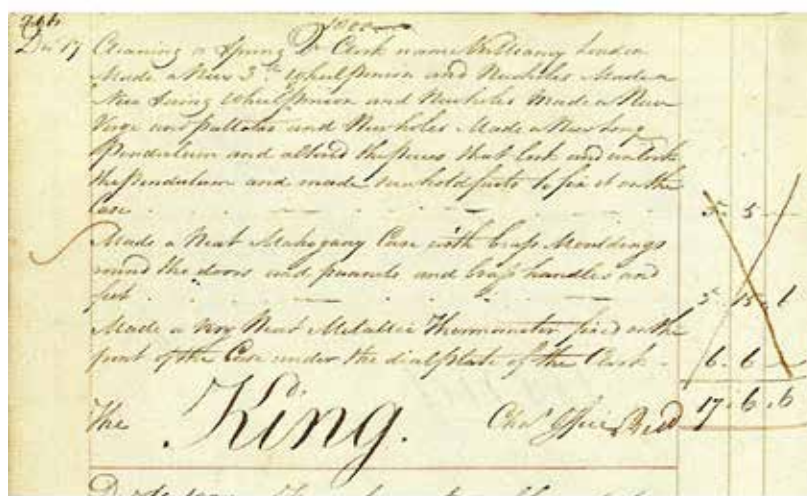 Dec 17 Cleaning a Spring Do Clock name Vulliamy London
Made a New 3rd Wheel pinion and New holes Made a
New Swing Wheel pinion and New holes Made a New
Verge and pallates and New holes Made a New Long
Pendulum and altered the pieces that lock and unlock
the Pendulum and made new holdfasts to fix it on the
Case 5 . 5 . —
Made a Neat Mahogany Case with brass Mouldings
round the doors and pannels and brass handles and
feet 5 . 15 . 1
Made a very Neat Metallic Thermometer fixed on the
front of the Case under the dial plate of the Clock 6 . 6 . —
The King. Chas 17 . 6 . 6